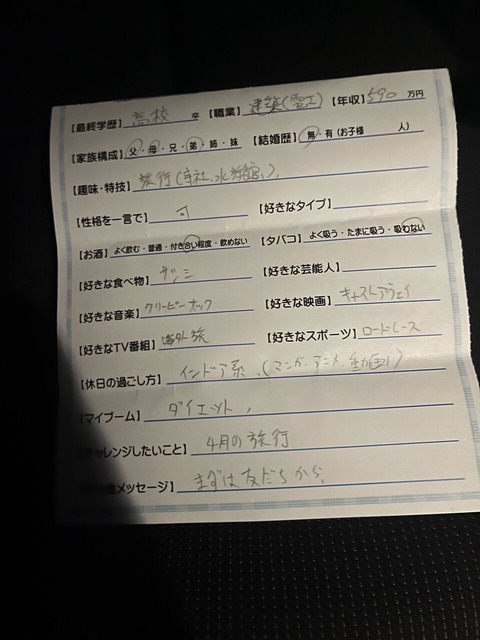 【最終学歴】高校 卒 【職業】建築(電工) 【年収】590 万円
【家族構成】父・母・兄・弟・姉・妹 【結婚歴】無・有(お子様 人)
【趣味・特技】旅行(寺社、水族館、)
【性格を一言で】 【好きなタイプ】
【お酒】よく飲む・普通・付き合い程度・飲めない 【タバコ】よく吸う・たまに吸う・吸わない
【好きな食べ物】サシミ 【好きな芸能人】
【好きな音楽】クリーピーナッツ 【好きな映画】キャストアウェイ
【好きなTV番組】海外旅 【好きなスポーツ】ロードレース
【休日の過ごし方】インドア系、(マンガ・アニメ・動画)
【マイブーム】ダイエット、
チャレンジしたいこと】4月の旅行
メッセージ】まずは友だちから。